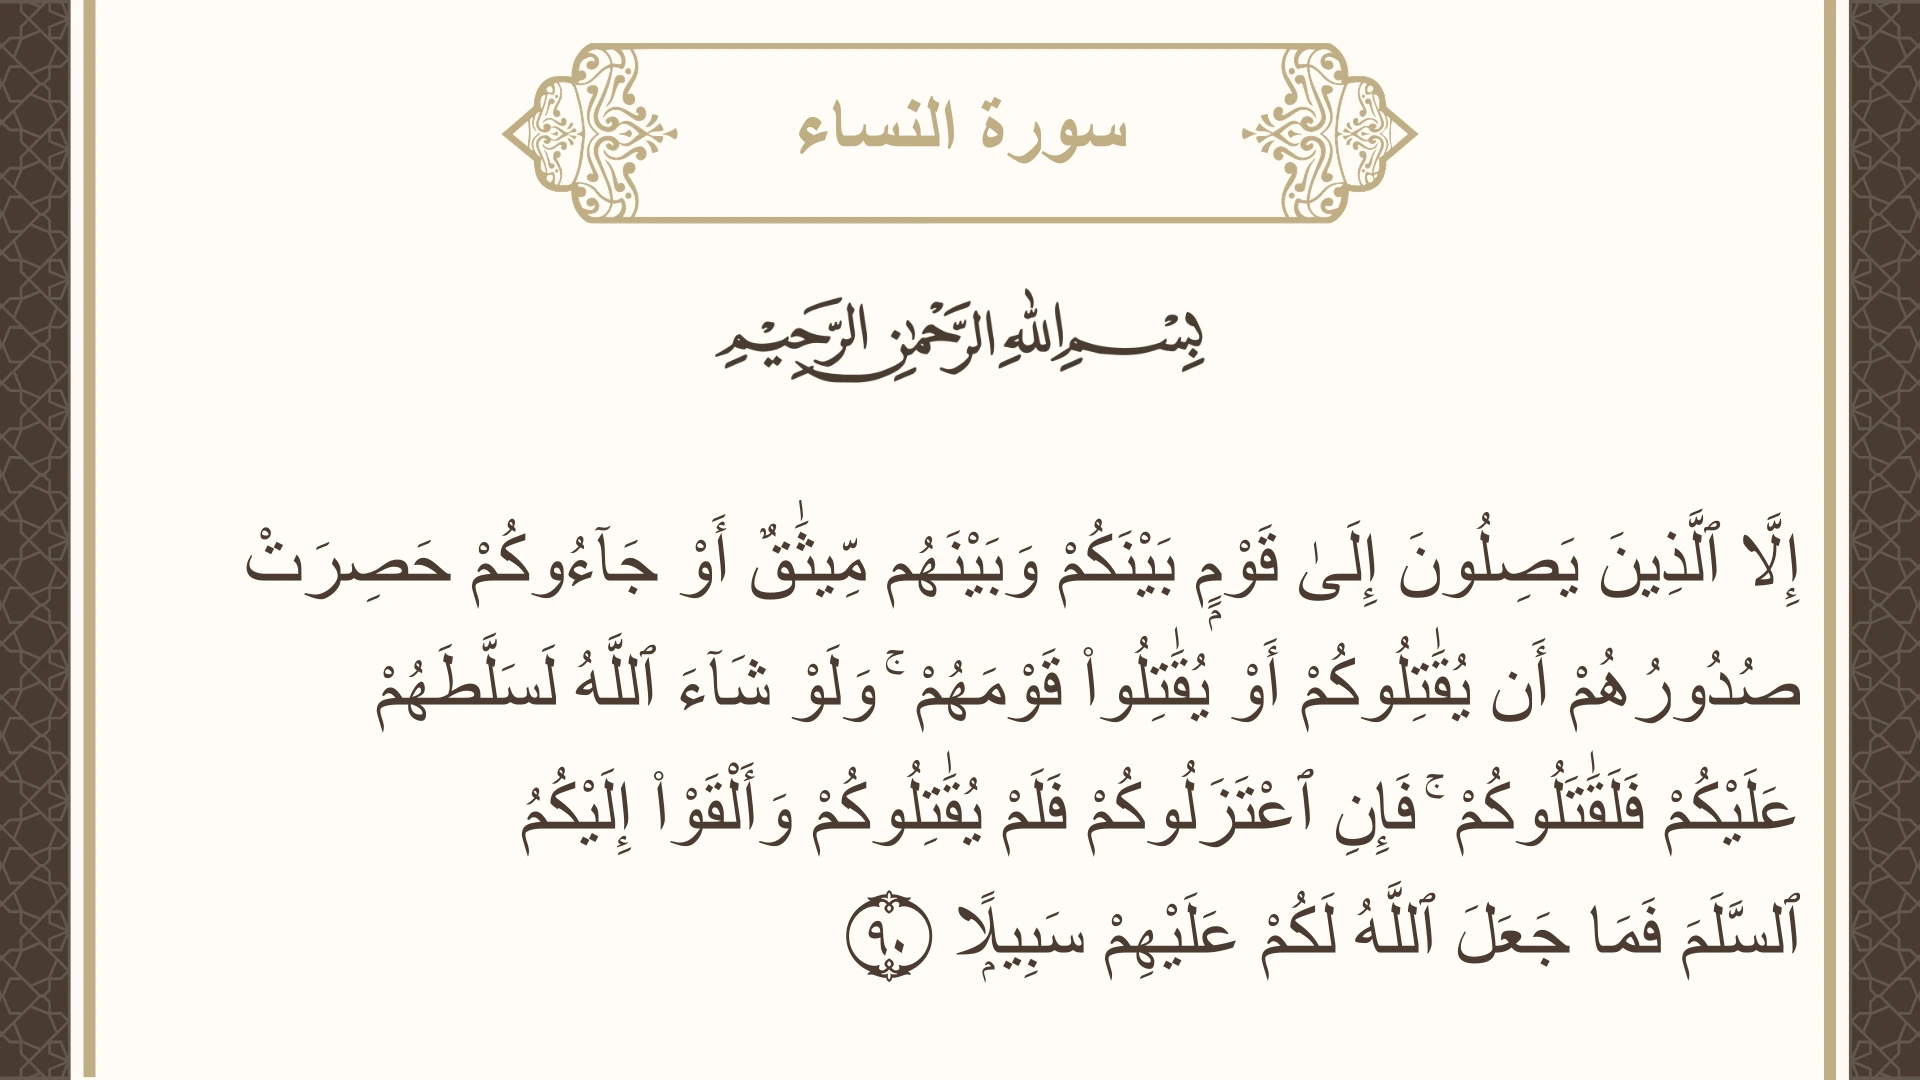 سورة النساء
بِسْمِ اللهِ الرَّحْمٰنِ الرَّحِيْمِ
إِلَّا ٱلَّذِينَ يَصِلُونَ إِلَىٰ قَوْمٍۭ بَيْنَكُمْ وَبَيْنَهُم مِّيثَٰقٌ أَوْ جَآءُوكُمْ حَصِرَتْ
صُدُورُهُمْ أَن يُقَٰتِلُوكُمْ أَوْ يُقَٰتِلُوا۟ قَوْمَهُمْ ۚ وَلَوْ شَآءَ ٱللَّهُ لَسَلَّطَهُمْ
عَلَيْكُمْ فَلَقَٰتَلُوكُمْ ۚ فَإِنِ ٱعْتَزَلُوكُمْ فَلَمْ يُقَٰتِلُوكُمْ وَأَلْقَوْا۟ إِلَيْكُمُ
ٱلسَّلَمَ فَمَا جَعَلَ ٱللَّهُ لَكُمْ عَلَيْهِمْ سَبِيلًۭا ٩٠